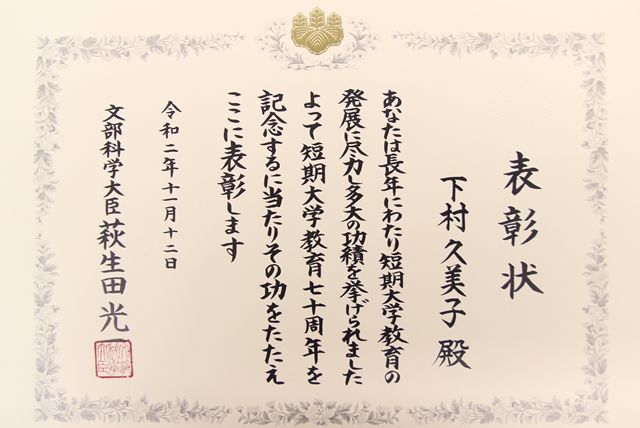 表彰状
下村久美子殿
あなたは長年にわたり短期大学教育の
発展に尽力し多大の功績を挙げられました
よって短期大学教育七十周年を
記念するに当たりその功をたたえ
ここに表彰します
令和二年十一月十二日
文部科学大臣 萩生田光一